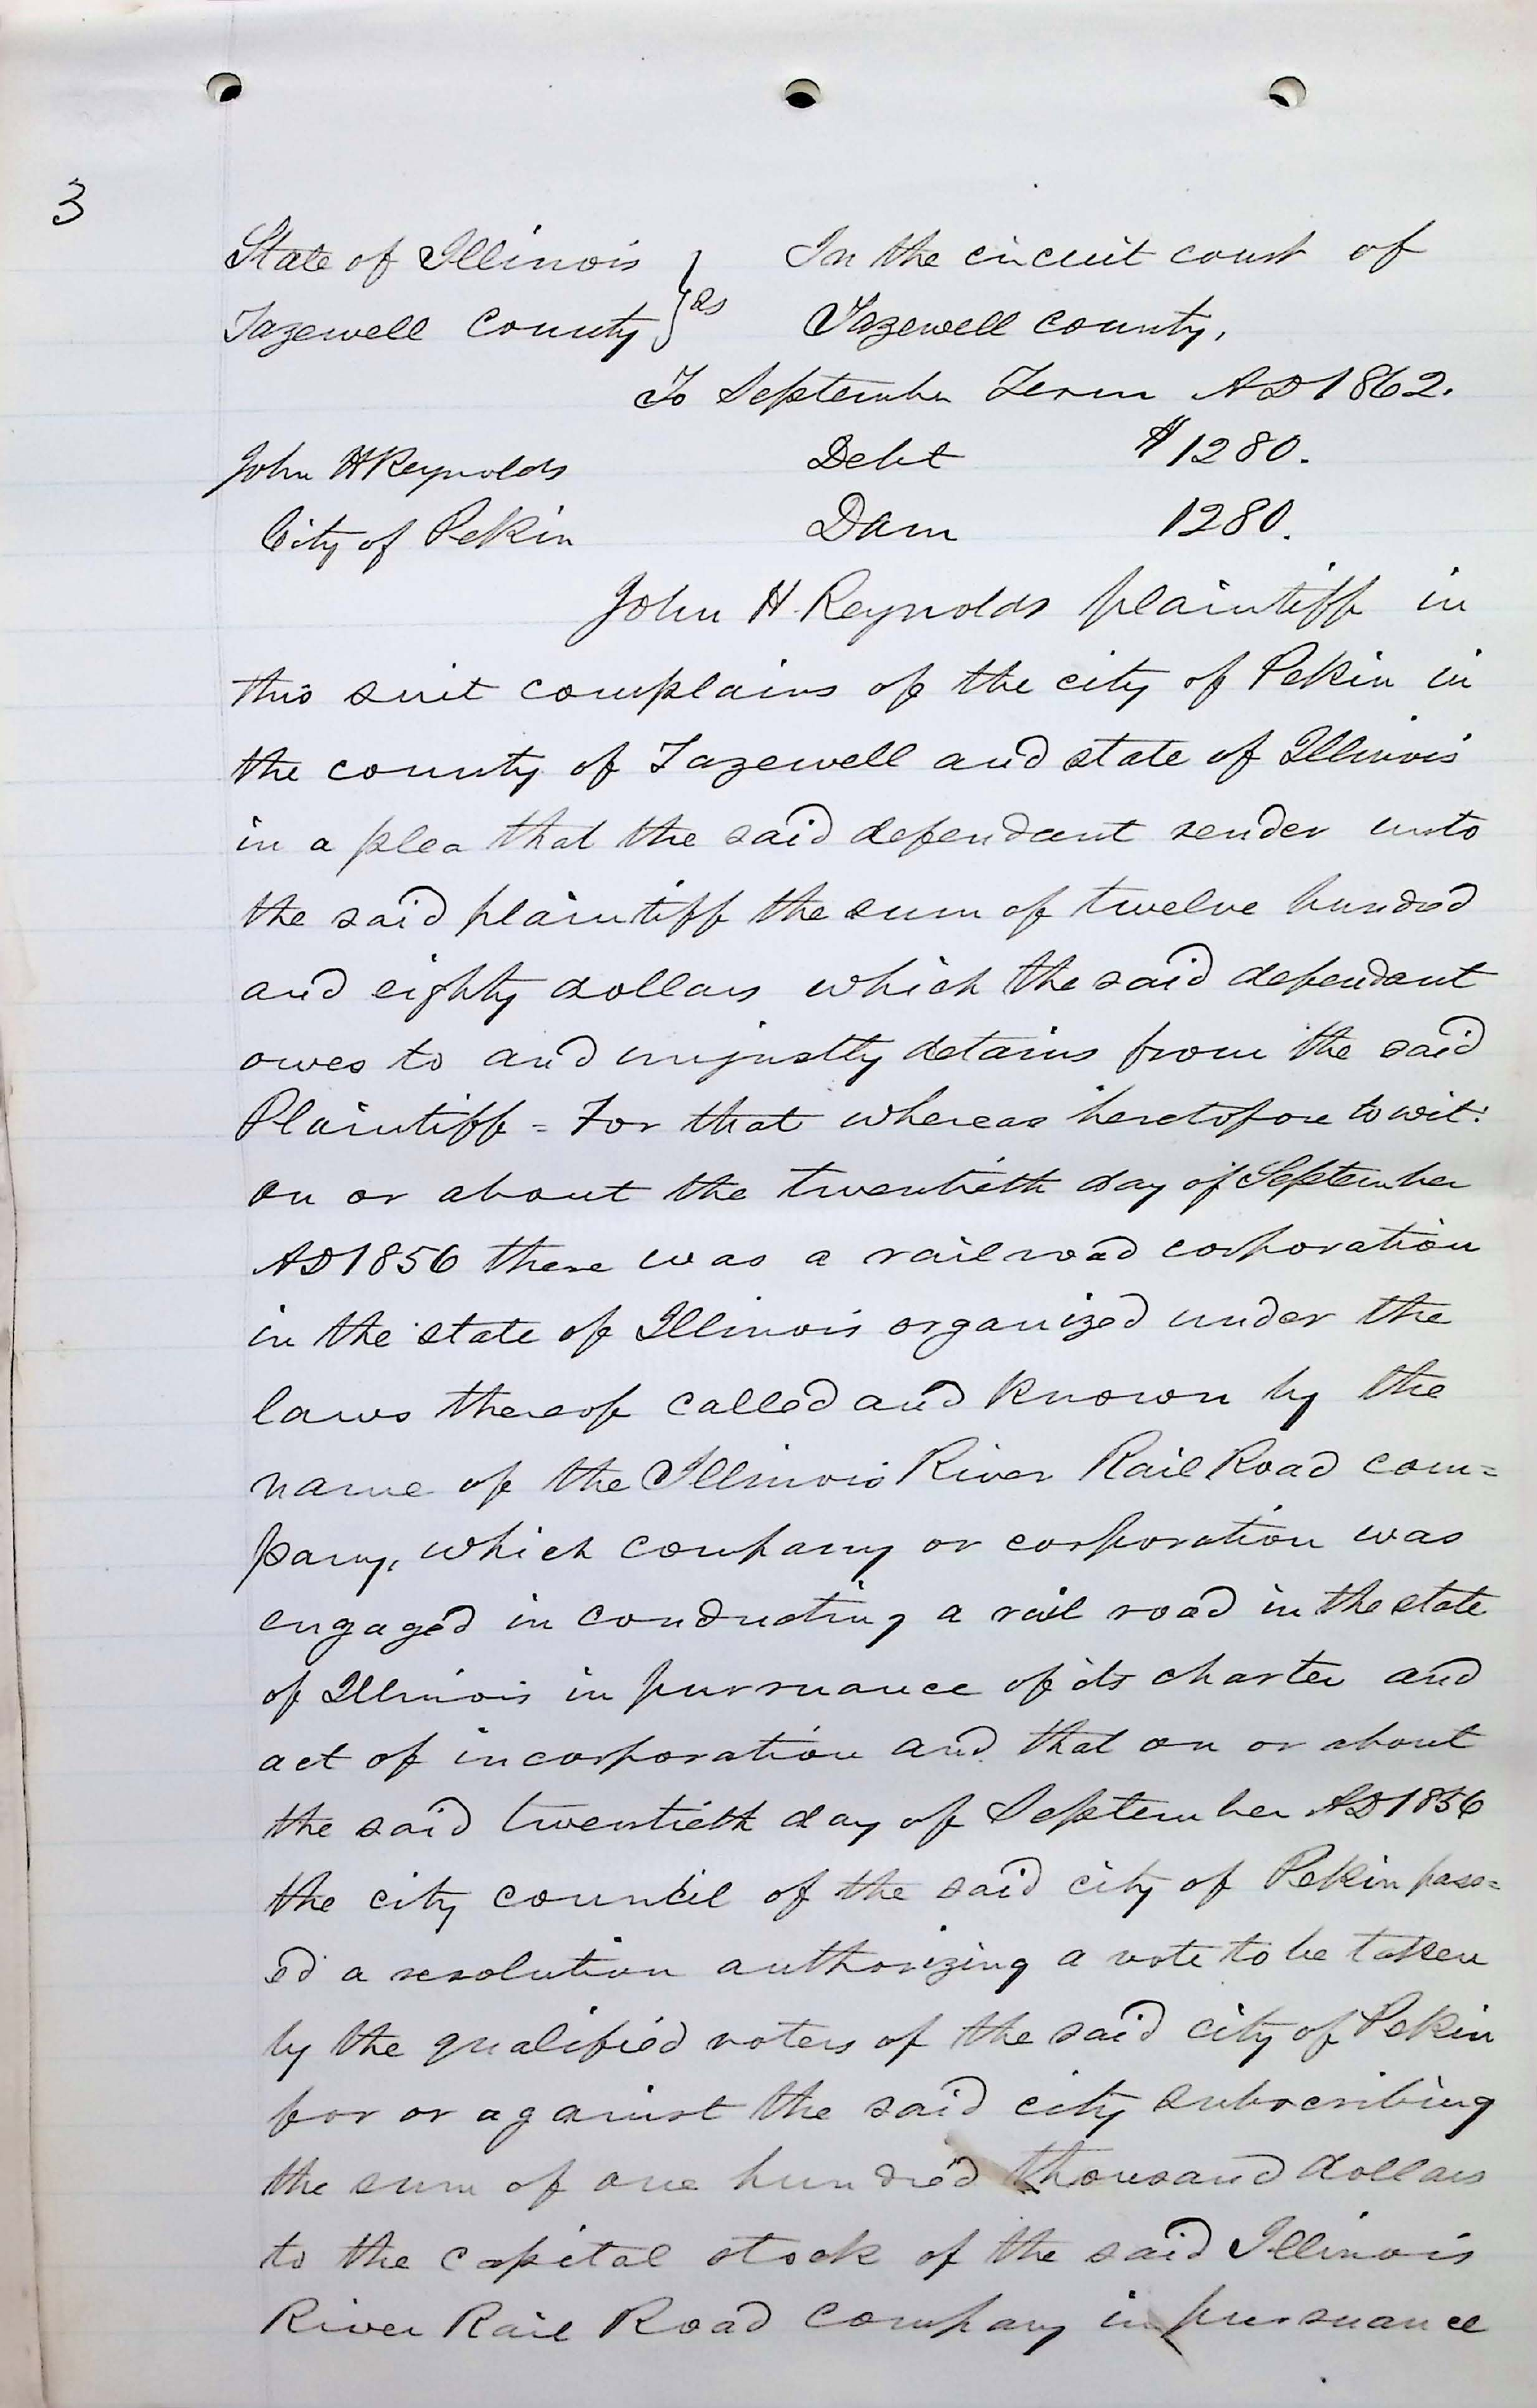 3
State of Illinois } ss In the circuit court of
Tazewell County } Tazewell county,
To September Term AD 1862.
John H Reynolds Debt $1280.
City of Pekin Dam 1280.
John H. Reynolds plaintiff in
this suit complains of the city of Pekin in
the county of Tazewell and state of Illinois
in a plea that the said defendant render unto
the said plaintiff the sum of twelve hundred
and eighty dollars which the said defendant
owes to and unjustly detains from the said
Plaintiff = For that whereas heretofore to wit:
on or about the twentieth day of September
AD 1856 there was a railroad corporation
in the state of Illinois organized under the
laws thereof called and known by the
name of the Illinois River Rail Road com=
pany, which company or corporation was
engaged in conducting a rail road in the state
of Illinois in pursuance of its charter and
act of incorporation and that on or about
the said twentieth day of September AD 1856
the city council of the said city of Pekin pass=
ed a resolution authorizing a vote to be taken
by the qualified voters of the said city of Pekin
for or against the said city subscribing
the sum of one hundred thousand dollars
to the capital stock of the said Illinois
River Rail Road company in pursuance